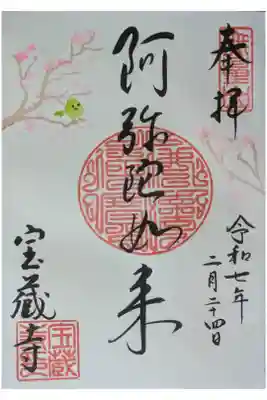 奉拝
令和七年
二月二十四日
阿弥陀如来
宝蔵寺